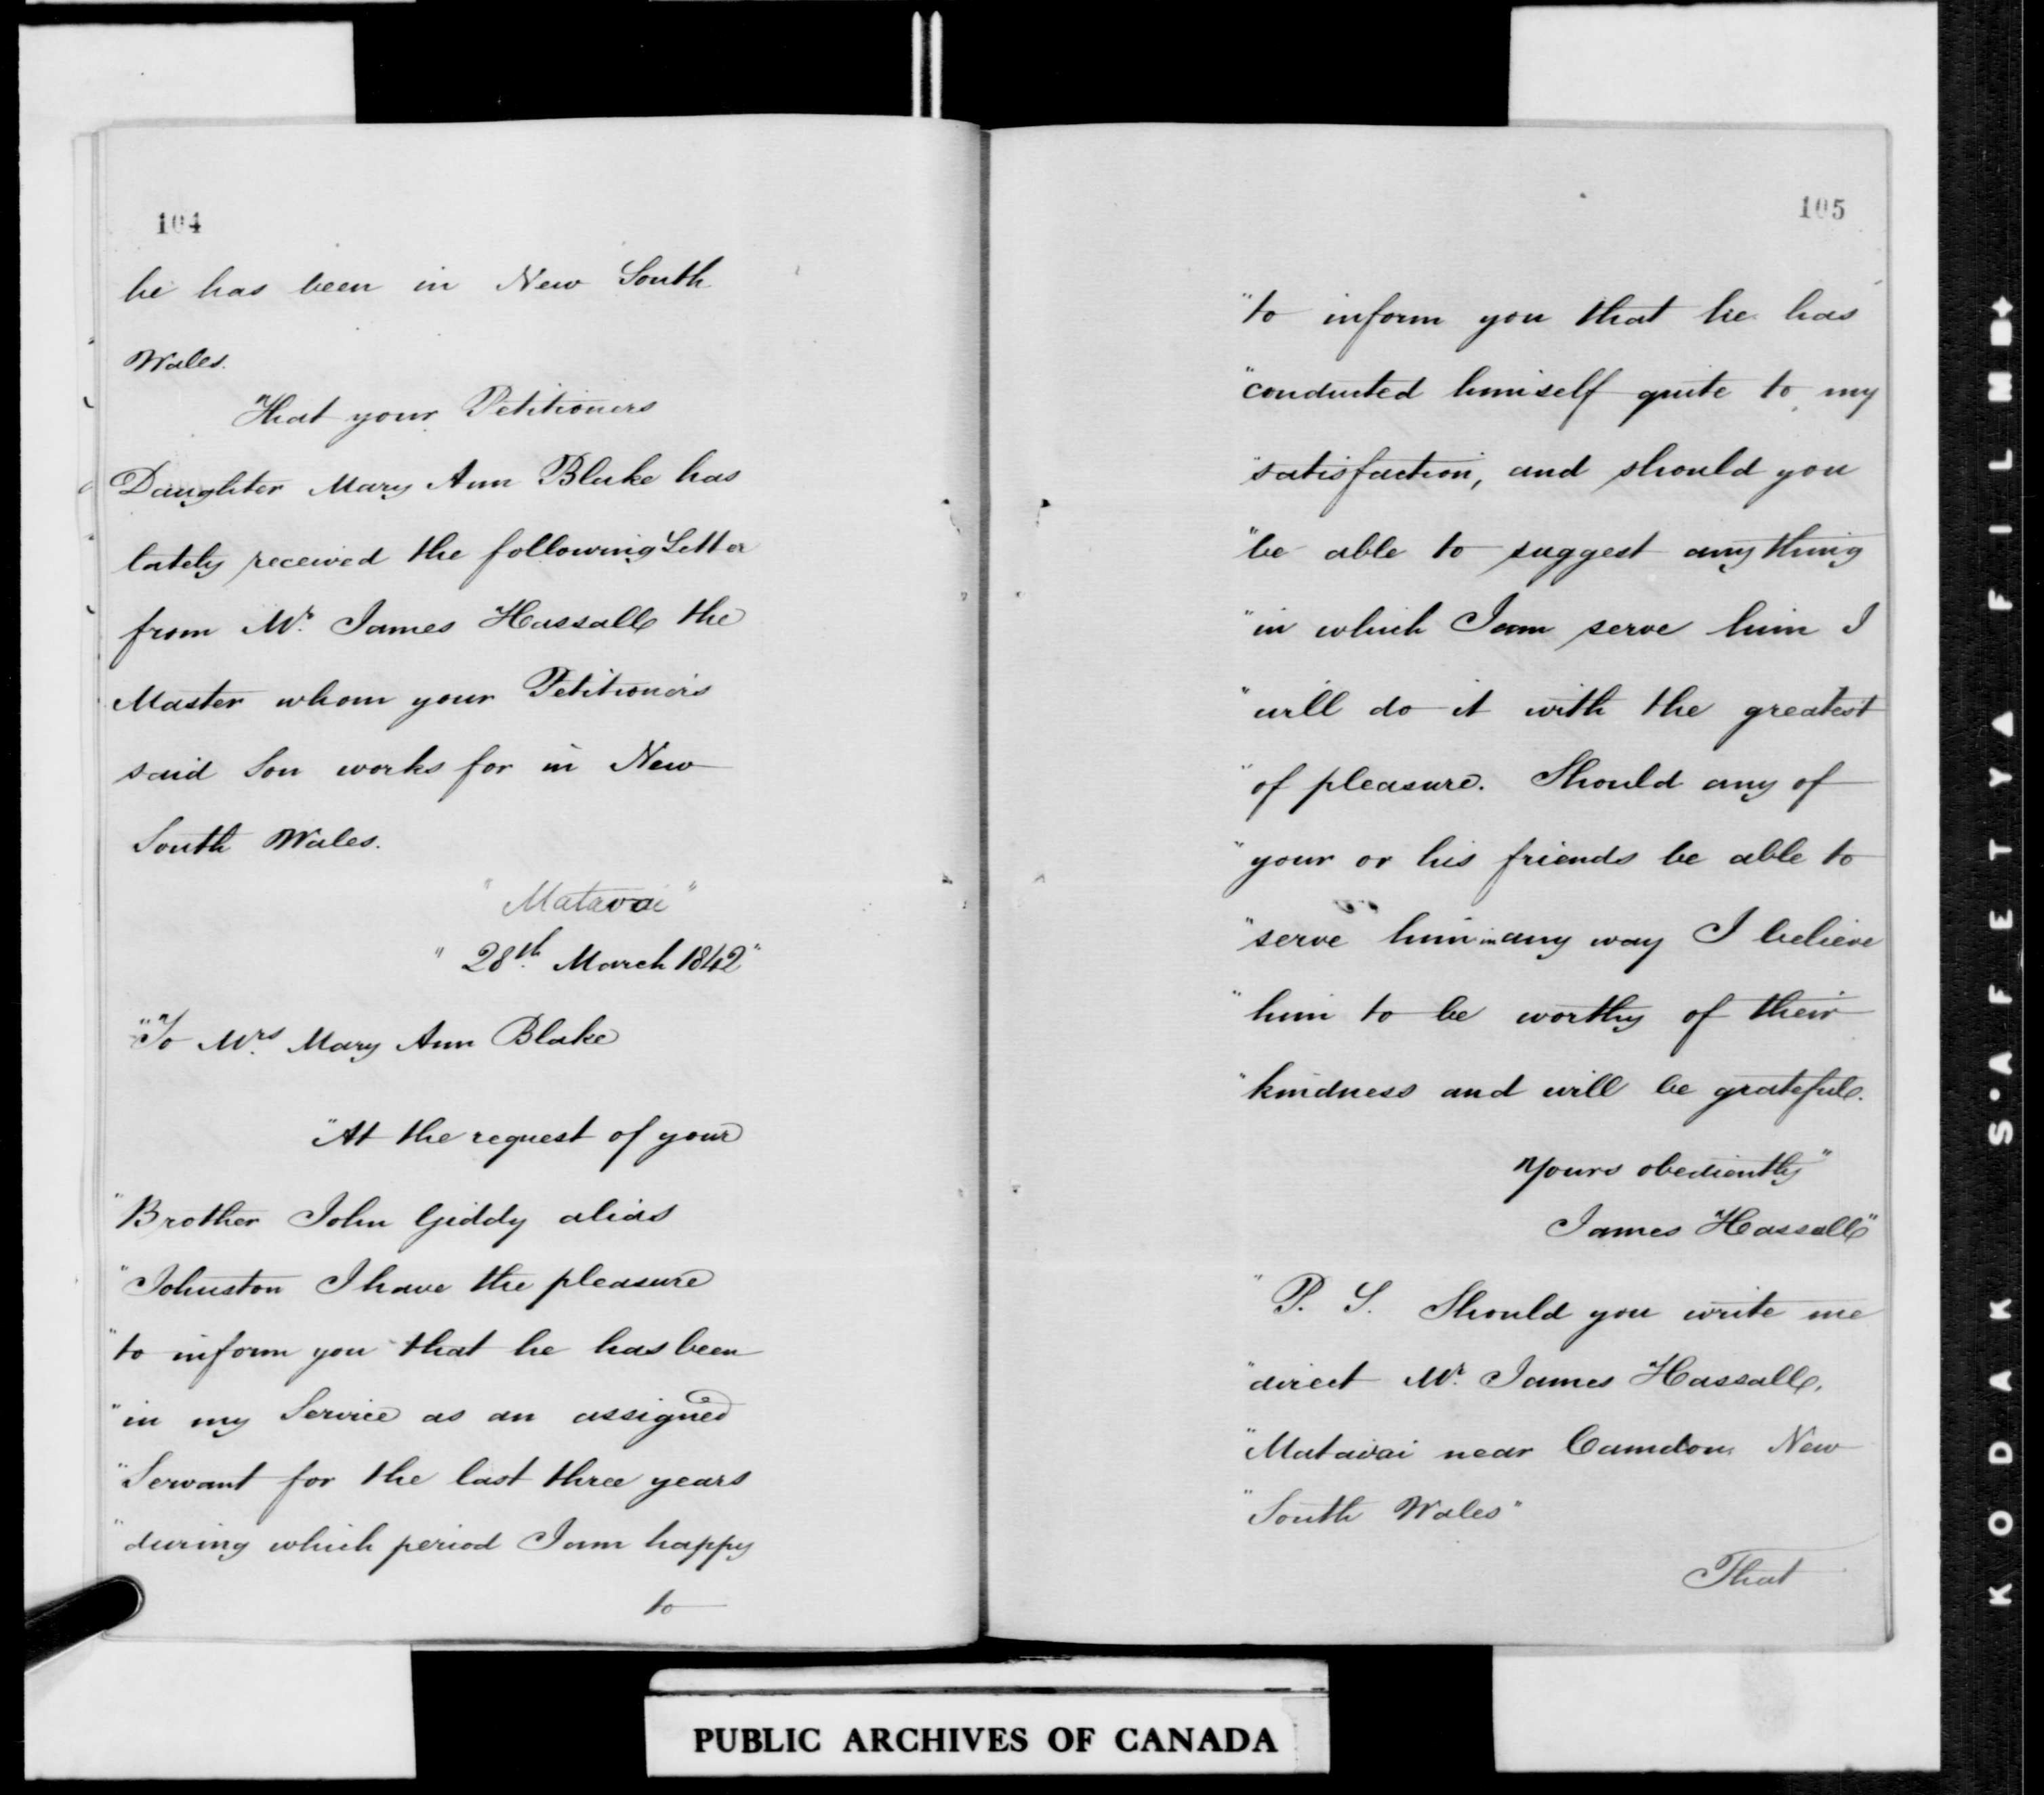 104
he has been in New South
Wales.
"That your Petitioners
Daughter Mary Ann Blake has
lately received the following Letter
from Mr. James Hassall the
Master whom your Petitioners
said Son works for in New
South Wales.
"Matavai"
"28th March 1842"
"To Mrs Mary Ann Blake
"At the request of your
"Brother John Giddy alias
"Johnston I have the pleasure
"to inform you that he has been
"in my Service as an assigned
"Servant for the last three years
"during which period I am happy
to
105
"to inform you that he has
"conducted himself quite to my
"satisfaction, and should you
"be able to suggest any thing
"in which I can serve him I
"will do it with the greatest
"of pleasure. Should any of
"your or his friends be able to
"serve him in any way I believe
"him to be worthy of their
"kindness and will be grateful.
"Yours obediently"
James Hassall"
"P. S. Should you write me
"direct Mr. James Hassall,
"Matavai near Camdon New
"South Wales"
That
PUBLIC ARCHIVES OF CANADA
KODAK S'AFETY FILM